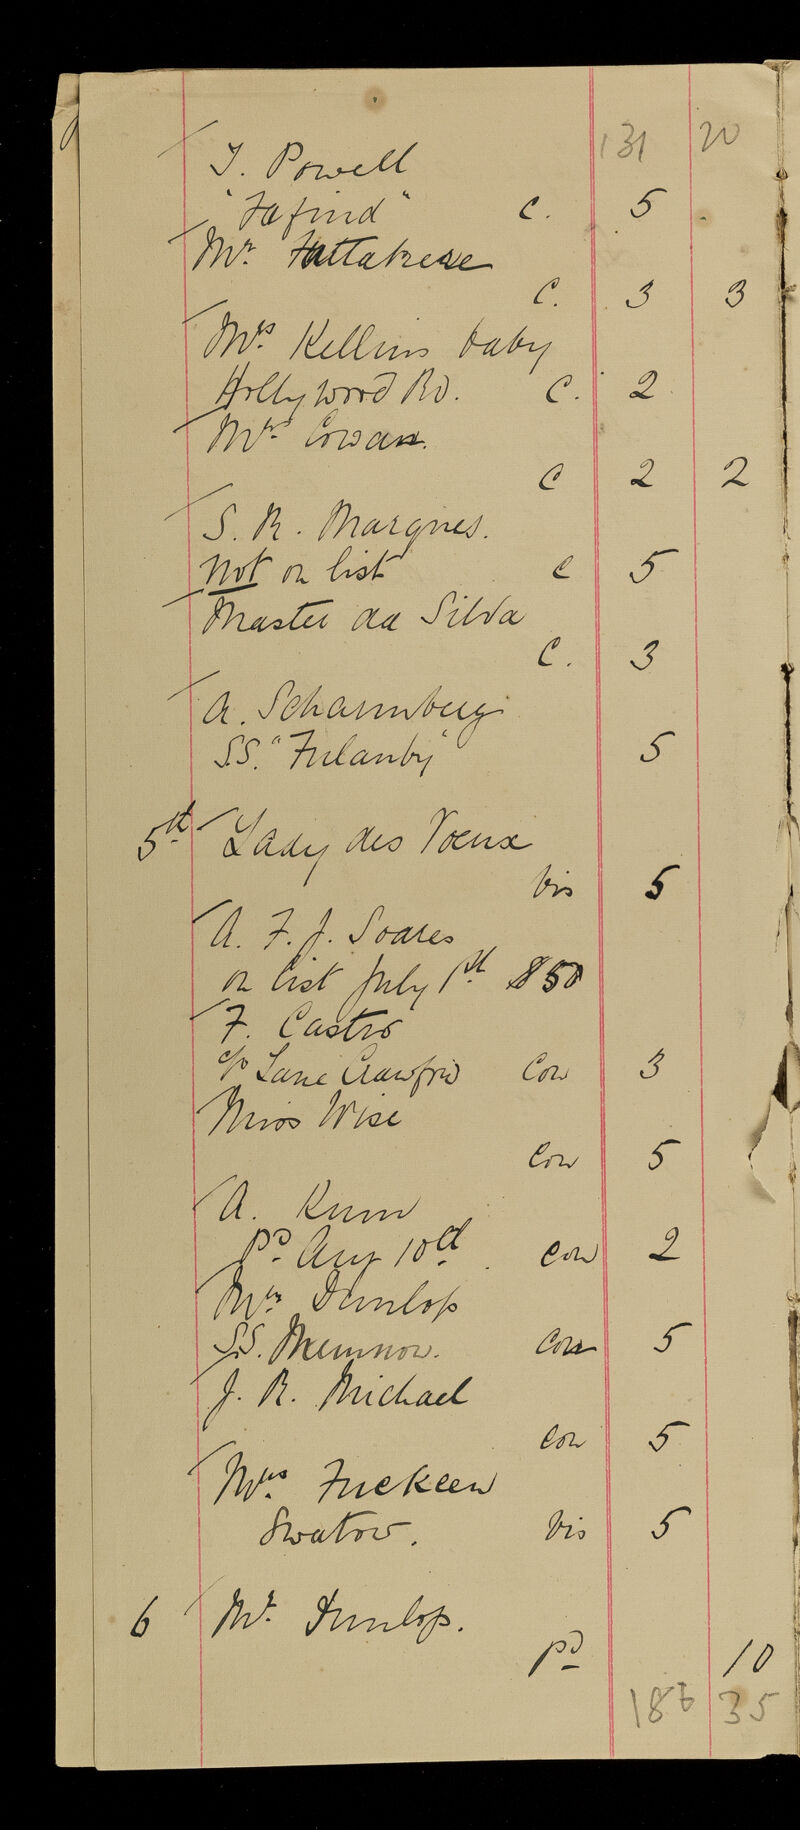 131 20
J. Powell
"Fafind" C. 5
Mr.
C. 3 3
Mrs. Kellins baby
Hollywood Rd. C. 2
Mrs. Cowan.
C 2 2
S. R. Marques.
Not on list C 5
Master da Silva
C. 3
A. Scharnberg
S.S. "Fulanby" 5
5th Lady des Voeux
Vis 5
A. F. J. Soares
on list July 1st $50
F. Castro
c/o Lane Crawford Con 3
Miss Wise
Con 5
A.
Pd. Aug 10th. Con 2
Mrs. Dunlop
S.S. Memnon. Con 5
J. R. Michael
Con 5
Mrs.
Swatow. Vis 5
6 Mr. Dunlop.
Pd 10
186 35